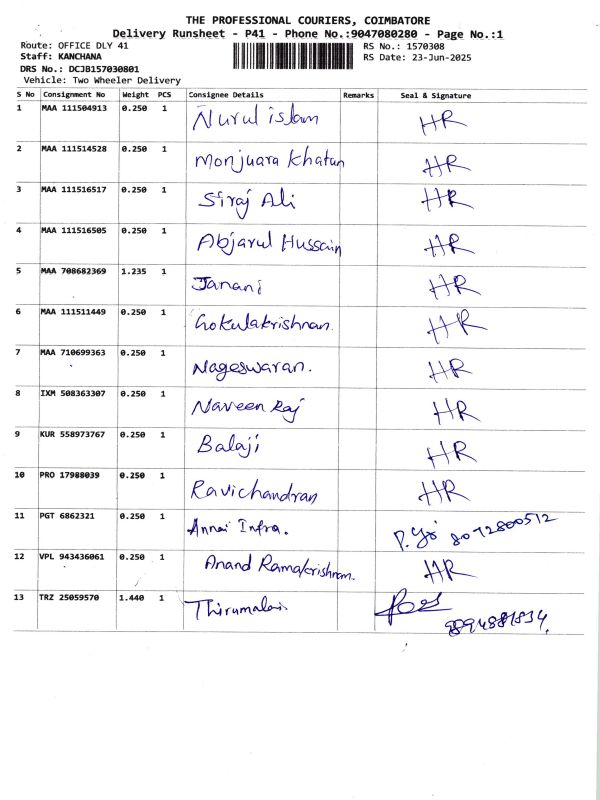 THE PROFESSIONAL COURIERS, COIMBATORE
Delivery Runsheet - P41 - Phone No.:9047080280 - Page No.:1
Route: OFFICE DLY 41 RS No.: 1570308
Staff: KANCHANA RS Date: 23-Jun-2025
DRS No.: DCJB157030801
Vehicle: Two Wheeler Delivery
S No Consignment No Weight PCS Consignee Details Remarks Seal & Signature
1 MAA 111504913 0.250 1 Nurul islam HR
2 MAA 111514528 0.250 1 Monjuara Khatun HR
3 MAA 111516517 0.250 1 Siraj Ali HR
4 MAA 111516505 0.250 1 Abjarul Hussain HR
5 MAA 708682369 1.235 1 Janani HR
6 MAA 111511449 0.250 1 Gokulakrishnan. HR
7 MAA 710699363 0.250 1 Nageswaran. HR
8 IXM 508363307 0.250 1 Naveen Raj HR
9 KUR 558973767 0.250 1 Balaji HR
10 PRO 17988039 0.250 1 Ravichandran HR
11 PGT 6862321 0.250 1 Annai Infra. 8072800512
12 VPL 943436061 0.250 1 Anand Ramakrishnan. HR
13 TRZ 25059570 1.440 1 Thirumalai
9894881834.